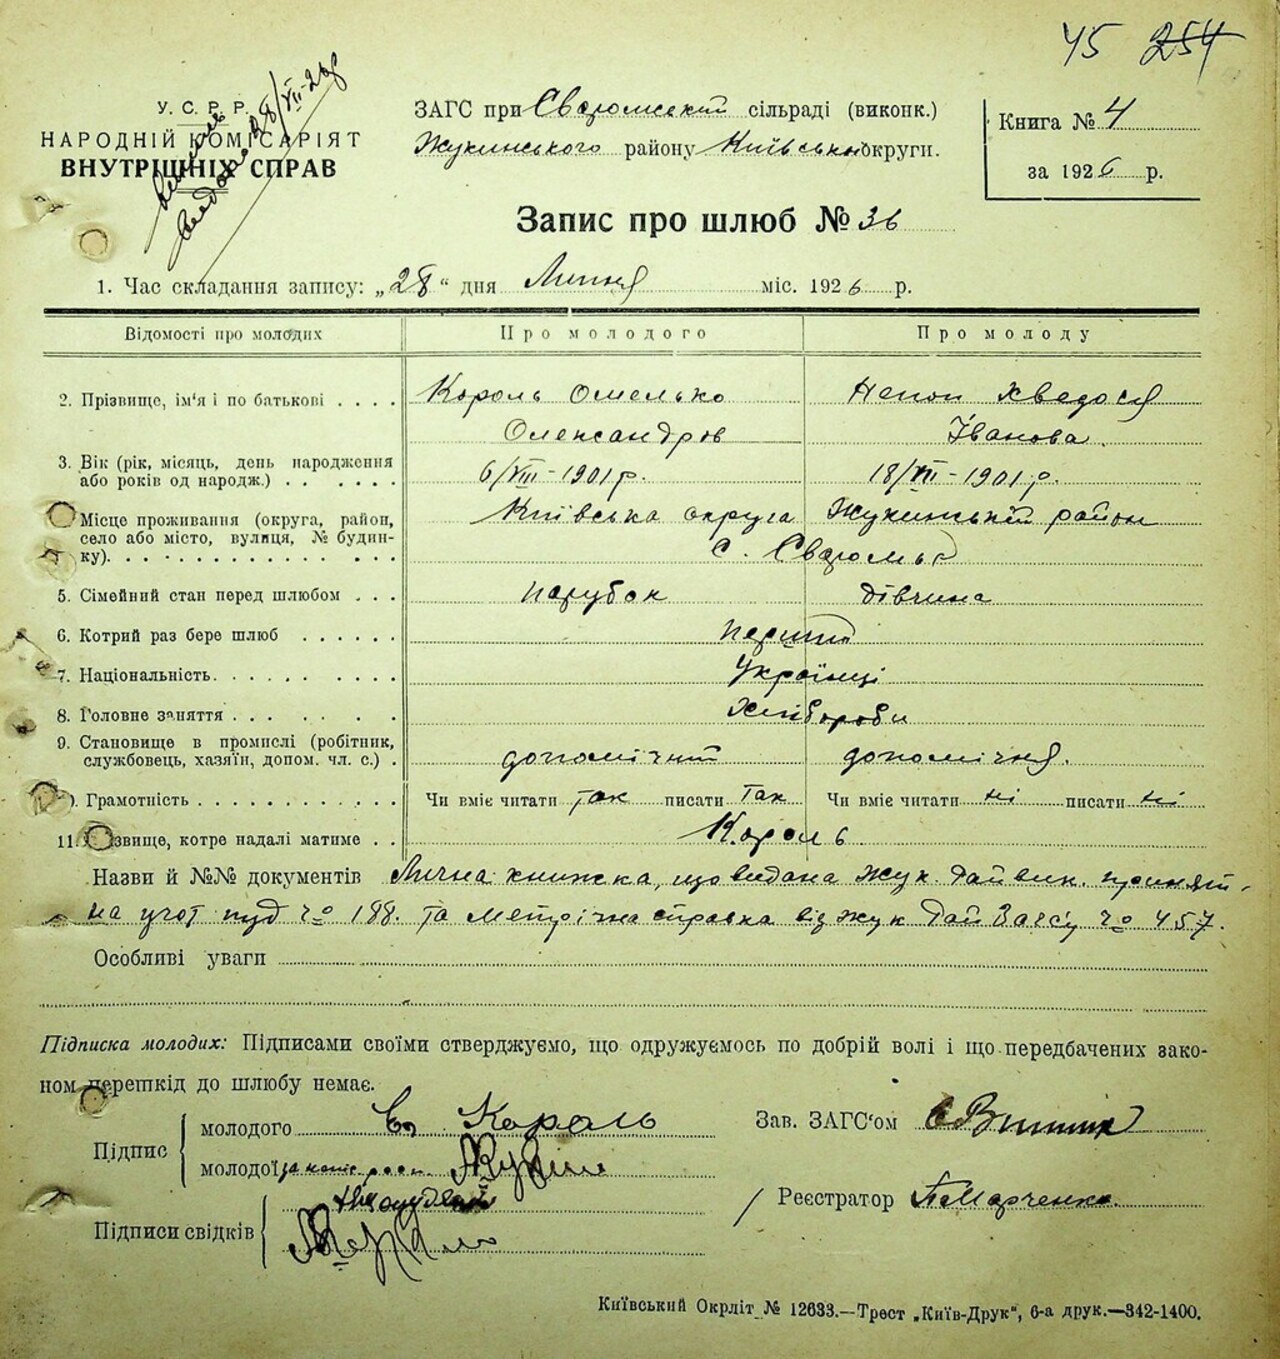 45 254
У. С. Р. Р.
НАРОДНІЙ КОМІСАРІЯТ
ВНУТРІШНІХ СПРАВ
ЗАГС при Євдомський сільраді (виконк.)
Жукинського району Київськ округи.
Книга № 4
за 1926 р.
Запис про шлюб № 36
1. Час складання запису: „28“ дня Липня міс. 1926 р.
Відомості про молодих Про молодого Про молоду
2. Прізвище, ім'я і по батькові Король Омелько Непоп Хведося
Олександров Іванова.
3. Вік (рік, місяць, день народження 6/VIII-1901 р. 18/VII-1901 р.
або років од народж.)
Місце проживання (округа, район, Київська округа Жукинський район
село або місто, вулиця, № будин- с.
ку).
5. Сімейний стан перед шлюбом парубок дівчина
6. Котрий раз бере шлюб перший
7. Національність Українці
8. Головне заняття Хлібороби
9. Становище в промислі (робітник,
службовець, хазяїн, допом. чл. с.) допомічний допомічня.
). Грамотність Чи вміє читати так писати так Чи вміє читати ні писати ні
11. звище, котре надалі матиме Король
Назви й №№ документів Лична книжка, що видана Жук. Райвик. принят-
на учот под № 188. та метрична справка від Жук Рай Загсу № 457.
Особливі уваги
Підписка молодих: Підписами своїми стверджуємо, що одружуємось по добрій волі і що передбачених зако-
ном перешкід до шлюбу немає.
Підпис молодого Король
молодої
Зав. ЗАГС'ом
Підписи свідків
Реєстратор Марченко
Київський Окрліт № 12633.—Трест „Київ-Друк“, 6-а друк.—342-1400.